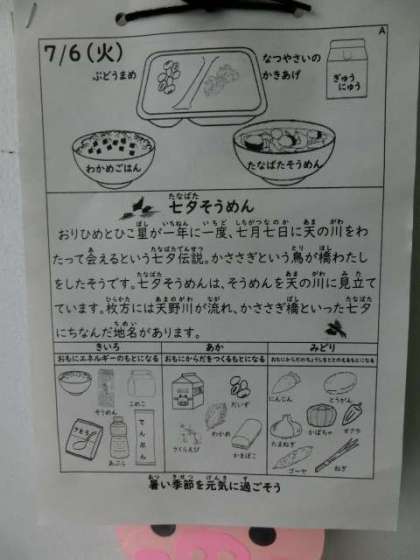 A
7/6(火)
ぶどうまめ
なつやさいの
かきあげ
ぎゅう
にゅう
わかめごはん
たなばたそうめん
七夕そうめん
おりひめとひこ星が一年に一度、七月七日に天の川をわ
たって会えるという七夕伝説。かささぎという鳥が橋わたし
をしたそうです。七夕そうめんは、そうめんを天の川に見立て
ています。枚方には天野川が流れ、かささぎ橋といった七夕
にちなんだ地名があります。
きいろ
おもにエネルギーのもとになる
こめこ
そうめん
さとう
あぶら
でんぷん
あか
おもにからだをつくるもとになる
だいず
わかめ
さくらえび
かまぼこ
みどり
おもにからだのちょうしをととのえるもとになる
にんじん
とうがん
たまねぎ
かぼちゃ
オクラ
ゴーヤ
ねぎ
暑い季節を元気に過ごそう